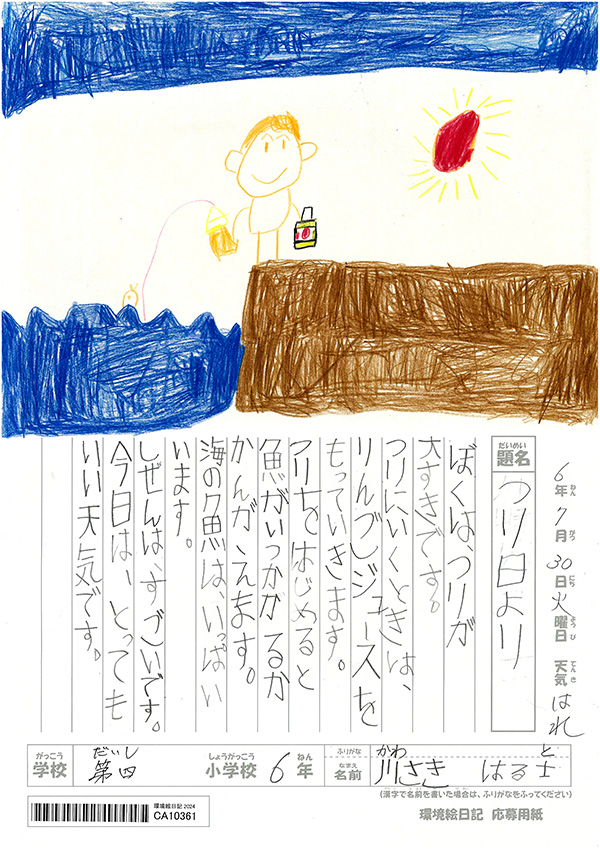 6年7月30日火曜日 天気 はれ
ねん がつ にち ようび てんき
だいめい
題名
つり日より
ぼくは、つりが
大すきです。
つりにいくときは、
りんごジュースを
もっていきます。
つりをはじめると
魚がいつかかるか
かんがえます。
海の魚は、いっぱい
います。
しぜんは、すごいです。
今日は、とっても
いい天気です。
がっこう
学校
だいし
第四
しょうがっこう
小学校
6年
ねん
ふりがな
かわ と
なまえ
名前
川さき はる士
(漢字で名前を書いた場合は、ふりがなをふってください)
環境絵日記 2024
CA10361
環境絵日記 応募用紙